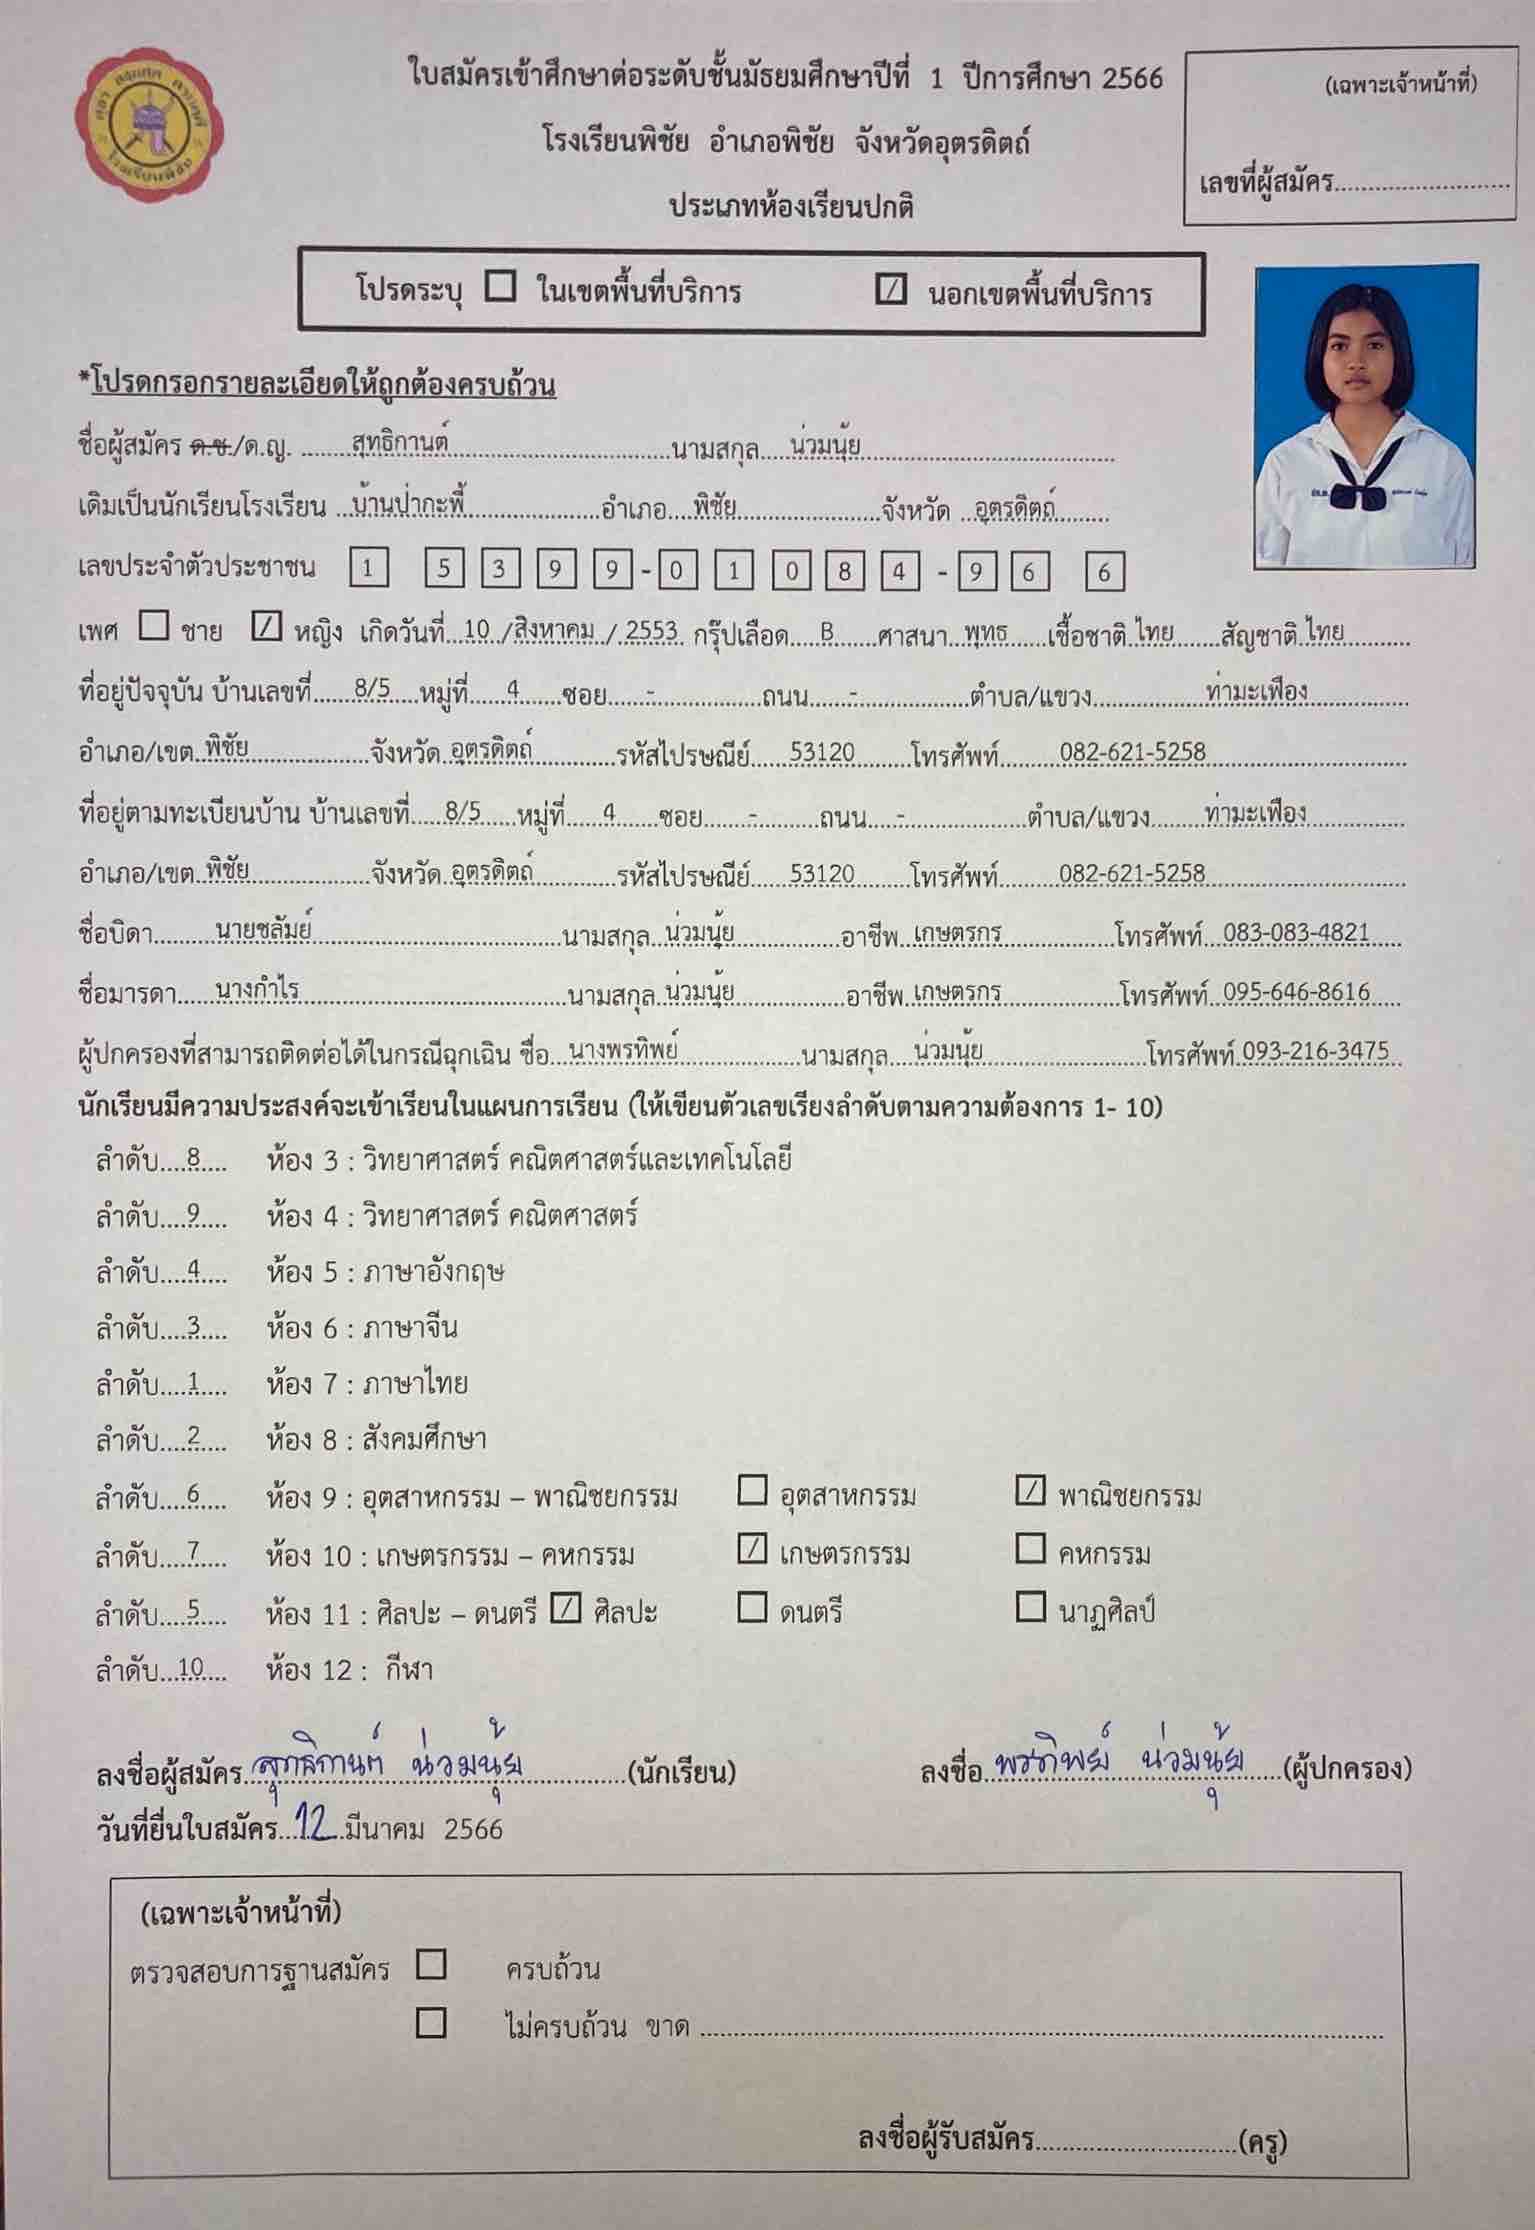 ใบสมัครเข้าศึกษาต่อระดับชั้นมัธยมศึกษาปีที่ 1 ปีการศึกษา 2566
(เฉพาะเจ้าหน้าที่)
โรงเรียนพิชัย อำเภอพิชัย จังหวัดอุตรดิตถ์
เลขที่ผู้สมัคร..........................
ประเภทห้องเรียนปกติ
โรงเรียนพิชัย
โปรดระบุ ☐ ในเขตพื้นที่บริการ ☑ นอกเขตพื้นที่บริการ
*โปรดกรอกรายละเอียดให้ถูกต้องครบถ้วน
ชื่อผู้สมัคร ด.ช./ด.ญ. ........สุทธิกานต์........นามสกุล.....น่วมนุ้ย........
เดิมเป็นนักเรียนโรงเรียน ...บ้านป่ากะพี้........อำเภอ....พิชัย........จังหวัด ...อุตรดิตถ์........
เลขประจำตัวประชาชน 1 5 3 9 9 - 0 1 0 8 4 - 9 6 6
เพศ ☐ ชาย ☑ หญิง เกิดวันที่...10.../สิงหาคม../..2553. กรุ๊ปเลือด.....B......ศาสนา...พุทธ......เชื้อชาติ.ไทย......สัญชาติ.ไทย........
ที่อยู่ปัจจุบัน บ้านเลขที่......8/5.....หมู่ที่......4......ซอย......-........ถนน......-........ตำบล/แขวง........ท่ามะเฟือง........
อำเภอ/เขต..พิชัย........จังหวัด..อุตรดิตถ์........รหัสไปรษณีย์......53120.......โทรศัพท์.......082-621-5258........
ที่อยู่ตามทะเบียนบ้าน บ้านเลขที่.....8/5.....หมู่ที่......4......ซอย......-........ถนน....-........ตำบล/แขวง.......ท่ามะเฟือง........
อำเภอ/เขต..พิชัย........จังหวัด..อุตรดิตถ์........รหัสไปรษณีย์......53120.......โทรศัพท์.......082-621-5258........
ชื่อบิดา........นายชลัมย์........นามสกุล..น่วมนุ้ย........อาชีพ..เกษตรกร........โทรศัพท์...083-083-4821....
ชื่อมารดา.....นางกำไร........นามสกุล..น่วมนุ้ย........อาชีพ..เกษตรกร........โทรศัพท์..095-646-8616....
ผู้ปกครองที่สามารถติดต่อได้ในกรณีฉุกเฉิน ชื่อ...นางพรทิพย์........นามสกุล....น่วมนุ้ย........โทรศัพท์.093-216-3475..
นักเรียนมีความประสงค์จะเข้าเรียนในแผนการเรียน (ให้เขียนตัวเลขเรียงลำดับตามความต้องการ 1- 10)
ลำดับ....8..... ห้อง 3 : วิทยาศาสตร์ คณิตศาสตร์และเทคโนโลยี
ลำดับ....9..... ห้อง 4 : วิทยาศาสตร์ คณิตศาสตร์
ลำดับ....4..... ห้อง 5 : ภาษาอังกฤษ
ลำดับ....3..... ห้อง 6 : ภาษาจีน
ลำดับ....1..... ห้อง 7 : ภาษาไทย
ลำดับ....2..... ห้อง 8 : สังคมศึกษา
ลำดับ....6..... ห้อง 9 : อุตสาหกรรม – พาณิชยกรรม ☐ อุตสาหกรรม ☑ พาณิชยกรรม
ลำดับ....7..... ห้อง 10 : เกษตรกรรม – คหกรรม ☑ เกษตรกรรม ☐ คหกรรม
ลำดับ....5..... ห้อง 11 : ศิลปะ – ดนตรี ☑ ศิลปะ ☐ ดนตรี ☐ นาฏศิลป์
ลำดับ...10.... ห้อง 12 : กีฬา
ลงชื่อผู้สมัคร.สุทธิกานต์ น่วมนุ้ย........(นักเรียน) ลงชื่อ.พรทิพย์ น่วมนุ้ย.....(ผู้ปกครอง)
วันที่ยื่นใบสมัคร...12..มีนาคม 2566
(เฉพาะเจ้าหน้าที่)
ตรวจสอบการฐานสมัคร ☐ ครบถ้วน
☐ ไม่ครบถ้วน ขาด ................................................
ลงชื่อผู้รับสมัคร..............................(ครู)